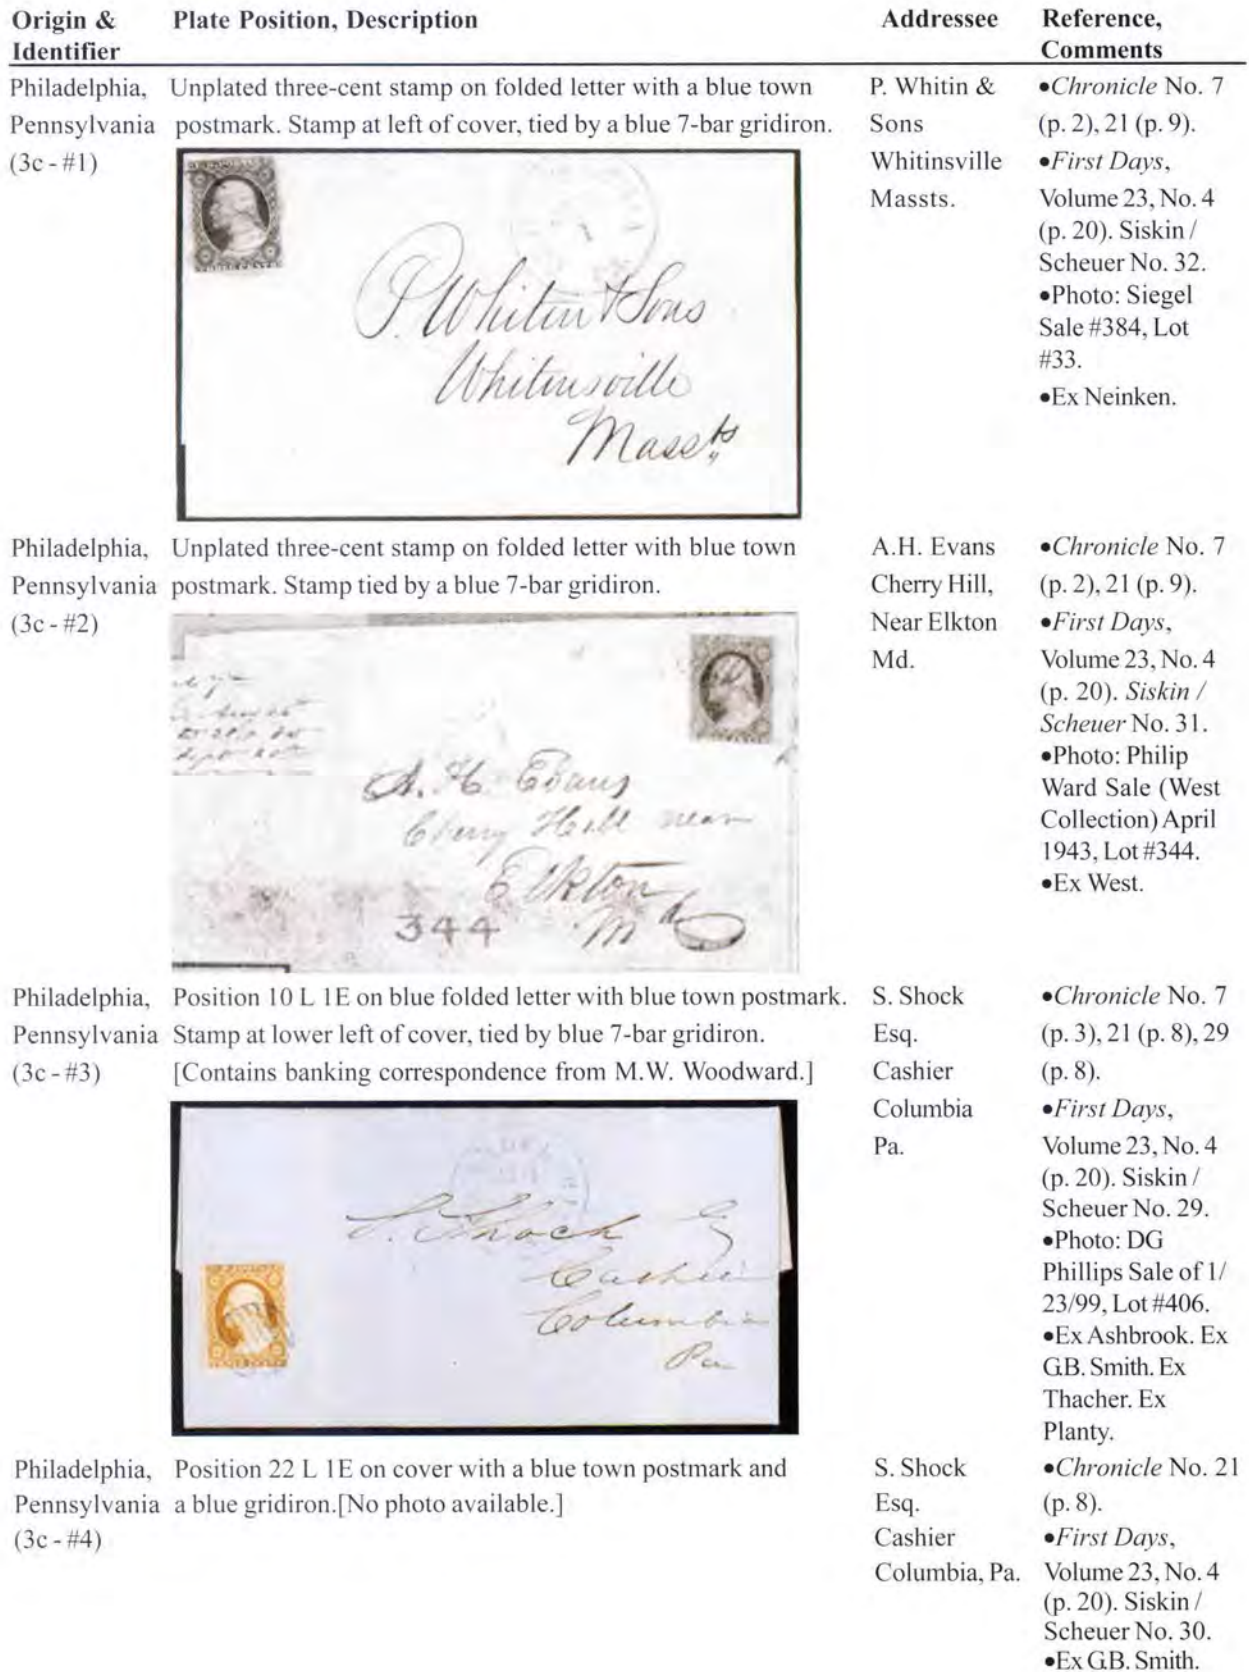 Origin & Identifier
Plate Position, Description
Addressee
Reference, Comments
Philadelphia, Pennsylvania (3c - #1)
Unplated three-cent stamp on folded letter with a blue town
postmark. Stamp at left of cover, tied by a blue 7-bar gridiron.
P. Whitin & Sons
Whitinsville
Massts
P. Whitin &
Sons
Whitinsville
Massts.
•Chronicle No. 7
(p. 2), 21 (p. 9).
•First Days,
Volume 23, No. 4
(p. 20). Siskin /
Scheuer No. 32.
•Photo: Siegel
Sale #384, Lot
#33.
•Ex Neinken.
Philadelphia, Pennsylvania (3c - #2)
Unplated three-cent stamp on folded letter with blue town
postmark. Stamp tied by a blue 7-bar gridiron.
A. H. Evans
Cherry Hill near
Elkton
Md
344
A.H. Evans
Cherry Hill,
Near Elkton
Md.
•Chronicle No. 7
(p. 2), 21 (p. 9).
•First Days,
Volume 23, No. 4
(p. 20). Siskin /
Scheuer No. 31.
•Photo: Philip
Ward Sale (West
Collection) April
1943, Lot #344.
•Ex West.
Philadelphia, Pennsylvania (3c - #3)
Position 10 L 1E on blue folded letter with blue town postmark.
Stamp at lower left of cover, tied by blue 7-bar gridiron.
[Contains banking correspondence from M.W. Woodward.]
S. Shock Esq
Cashier
Columbia
Pa
S. Shock
Esq.
Cashier
Columbia
Pa.
•Chronicle No. 7
(p. 3), 21 (p. 8), 29
(p. 8).
•First Days,
Volume 23, No. 4
(p. 20). Siskin /
Scheuer No. 29.
•Photo: DG
Phillips Sale of 1/
23/99, Lot #406.
•Ex Ashbrook. Ex
G.B. Smith. Ex
Thacher. Ex
Planty.
Philadelphia, Pennsylvania (3c - #4)
Position 22 L 1E on cover with a blue town postmark and
a blue gridiron.[No photo available.]
S. Shock
Esq.
Cashier
Columbia, Pa.
•Chronicle No. 21
(p. 8).
•First Days,
Volume 23, No. 4
(p. 20). Siskin /
Scheuer No. 30.
•Ex G.B. Smith.